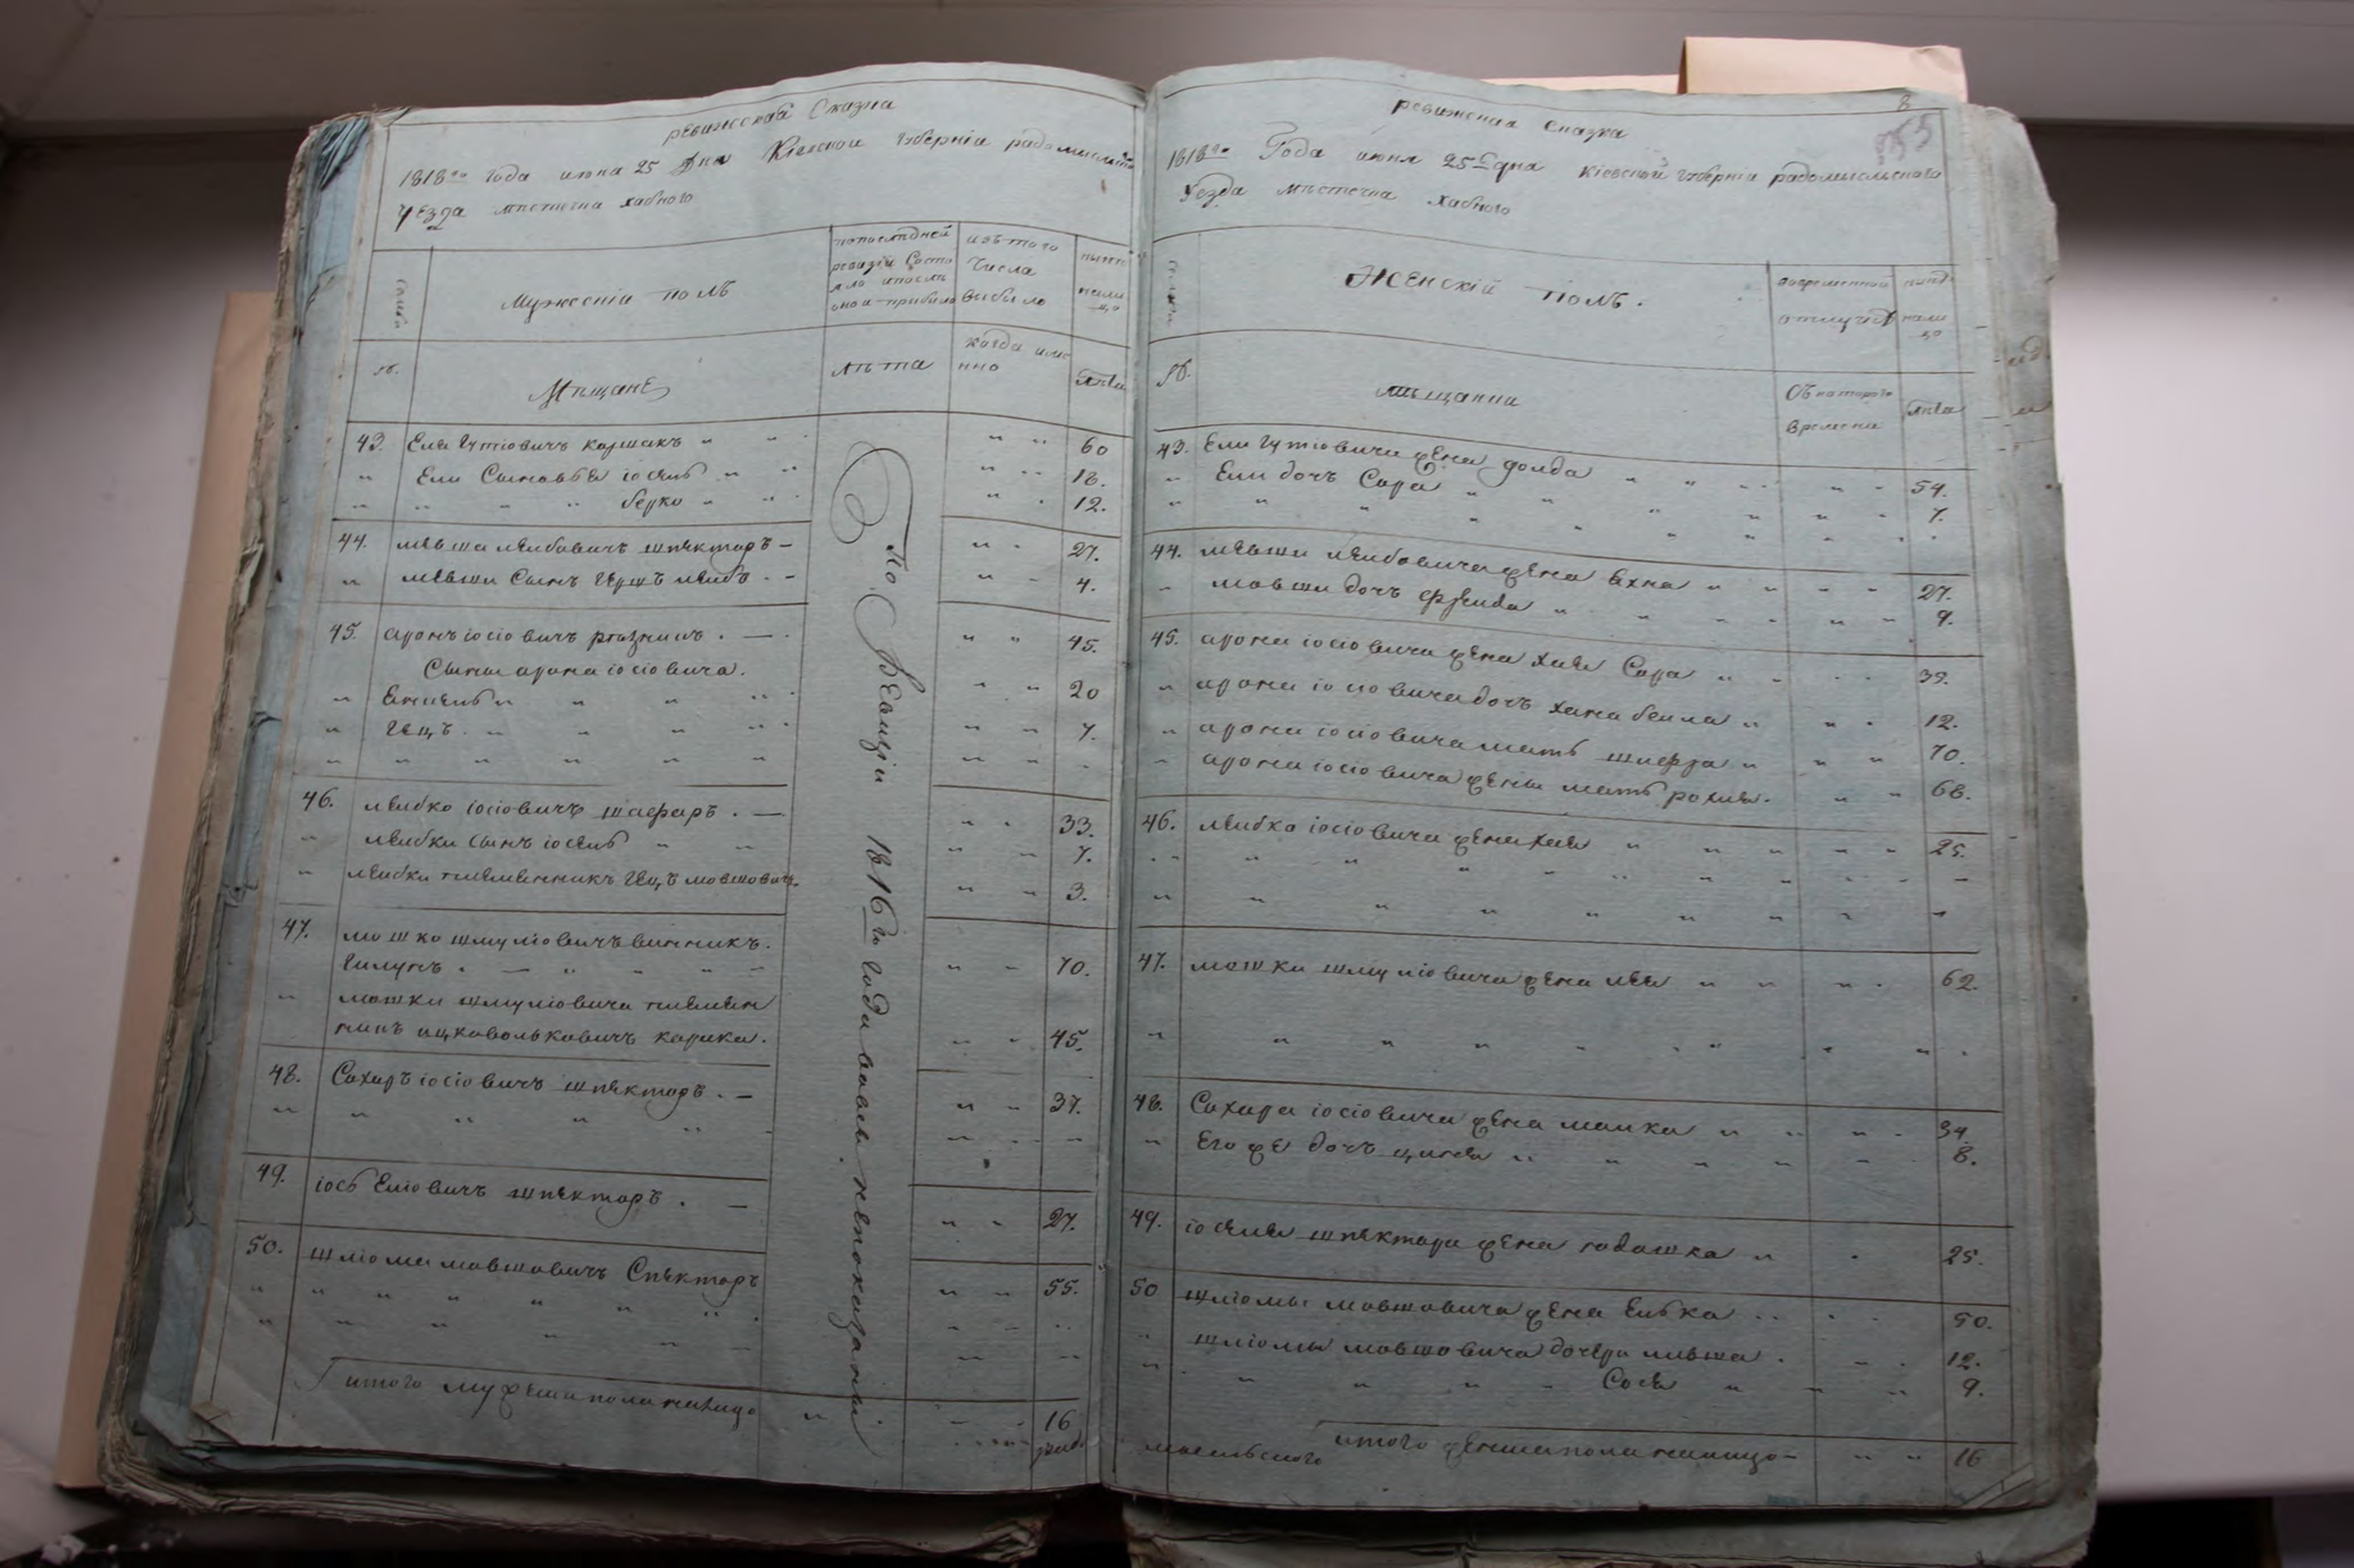 ревижская Сказка
1818го года июня 25 Дня Кіевской Губерніи радомысльского
Уезда мѣстечка хабного
Семьи
Мужескій полъ
попоследней ревизіи Состояло ипосль оной прибило
изъ того Числа выбыло
нынѣ налицо
№.
Мѣщане
лѣта
когда имянно
лѣта
43. Еля Гутіовичъ коршакъ 60
Ели Сыновья іосель 18.
берко 12.
44. мевша лейбовичъ шпекторъ 27.
мевши Сынъ Герш лейбъ 4.
45. аронъ іосіовичъ резникъ 45.
Сыны арона іосіовича.
20
Гецъ 7.
46. лейбко іосіовичъ шафаръ 33.
лейбки Сынъ іосель 7.
лейбки племенникъ Гецъ мовшовичъ 3.
47. мошко шмуліовичъ винникъ.
70.
мошки шмуліовича племен
никъ ицковольковичъ 45.
48. Сахаръ іосіовичъ шпекторъ 37.
49. іось Еліовичъ шпекторъ 27.
50. шліома мовшовичъ Спекторъ 55.
По Ревизіи 1816го года вовсь непоказаны
итого мужеска пола налицо 16
8
ревижская Сказка
1818го Года июня 25го дня кіевской Губерніи радомысльского
Уезда мѣстечка хабного
Женскій полъ.
вовременной отлучкѣ
нынѣ налицо
№.
мѣщанки
Съ котораго времени
лѣта
43. Ели Гутіовича жена голда 54.
Ели дочъ Сура 7.
44. мевши лейбовича жена Ехна 27.
мовши дочъ фрейда 9.
45. арона іосіовича жена хая Сура 39.
арона іосіовича дочъ хана бейла 12.
арона іосіовича мать шифра 70.
арона іосіовича жены мать рохля. 68.
46. лейбка іосіовича жена хая 25.
47. мошки шмуліовича жена лея 62.
48. Сахара іосіовича жена малка 34.
Его же дочъ ципа 8.
49. іоселя шпектора жена 25.
50 шліомы мовшовича жена Елька 50.
шліомы мовшовича дочери ливша 12.
Сося 9.
итого женска пола налицо 16